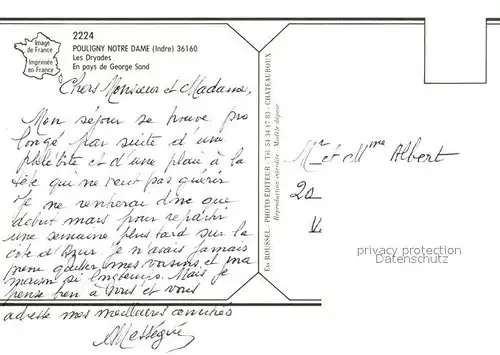 Image
de France
Imprimée
en France
2224
POULIGNY NOTRE DAME (Indre) 36160
Les Dryades
En pays de George Sand
Chers Monsieur et Madame,
Mon séjour se trouve pro
longé par suite d'une
phlébite et d'une plaie à la
tête qui ne veut pas guérir
Je ne rentrerai que
début mars pour repartir
une semaine plus tard sur la
côte d'Azur je n'avais jamais
mes voisins et ma
si longtemps. Mais je
pense bien à vous et vous
adresse mes meilleures amitiés
Ed. ROUSSEL - PHOTO-ÉDITEUR - Tél. 54 34 17 83 - CHATEAUROUX
Reproduction interdite - Modèle déposé
Mr et Mme Albert
20
V
privacy protection
Datenschutz